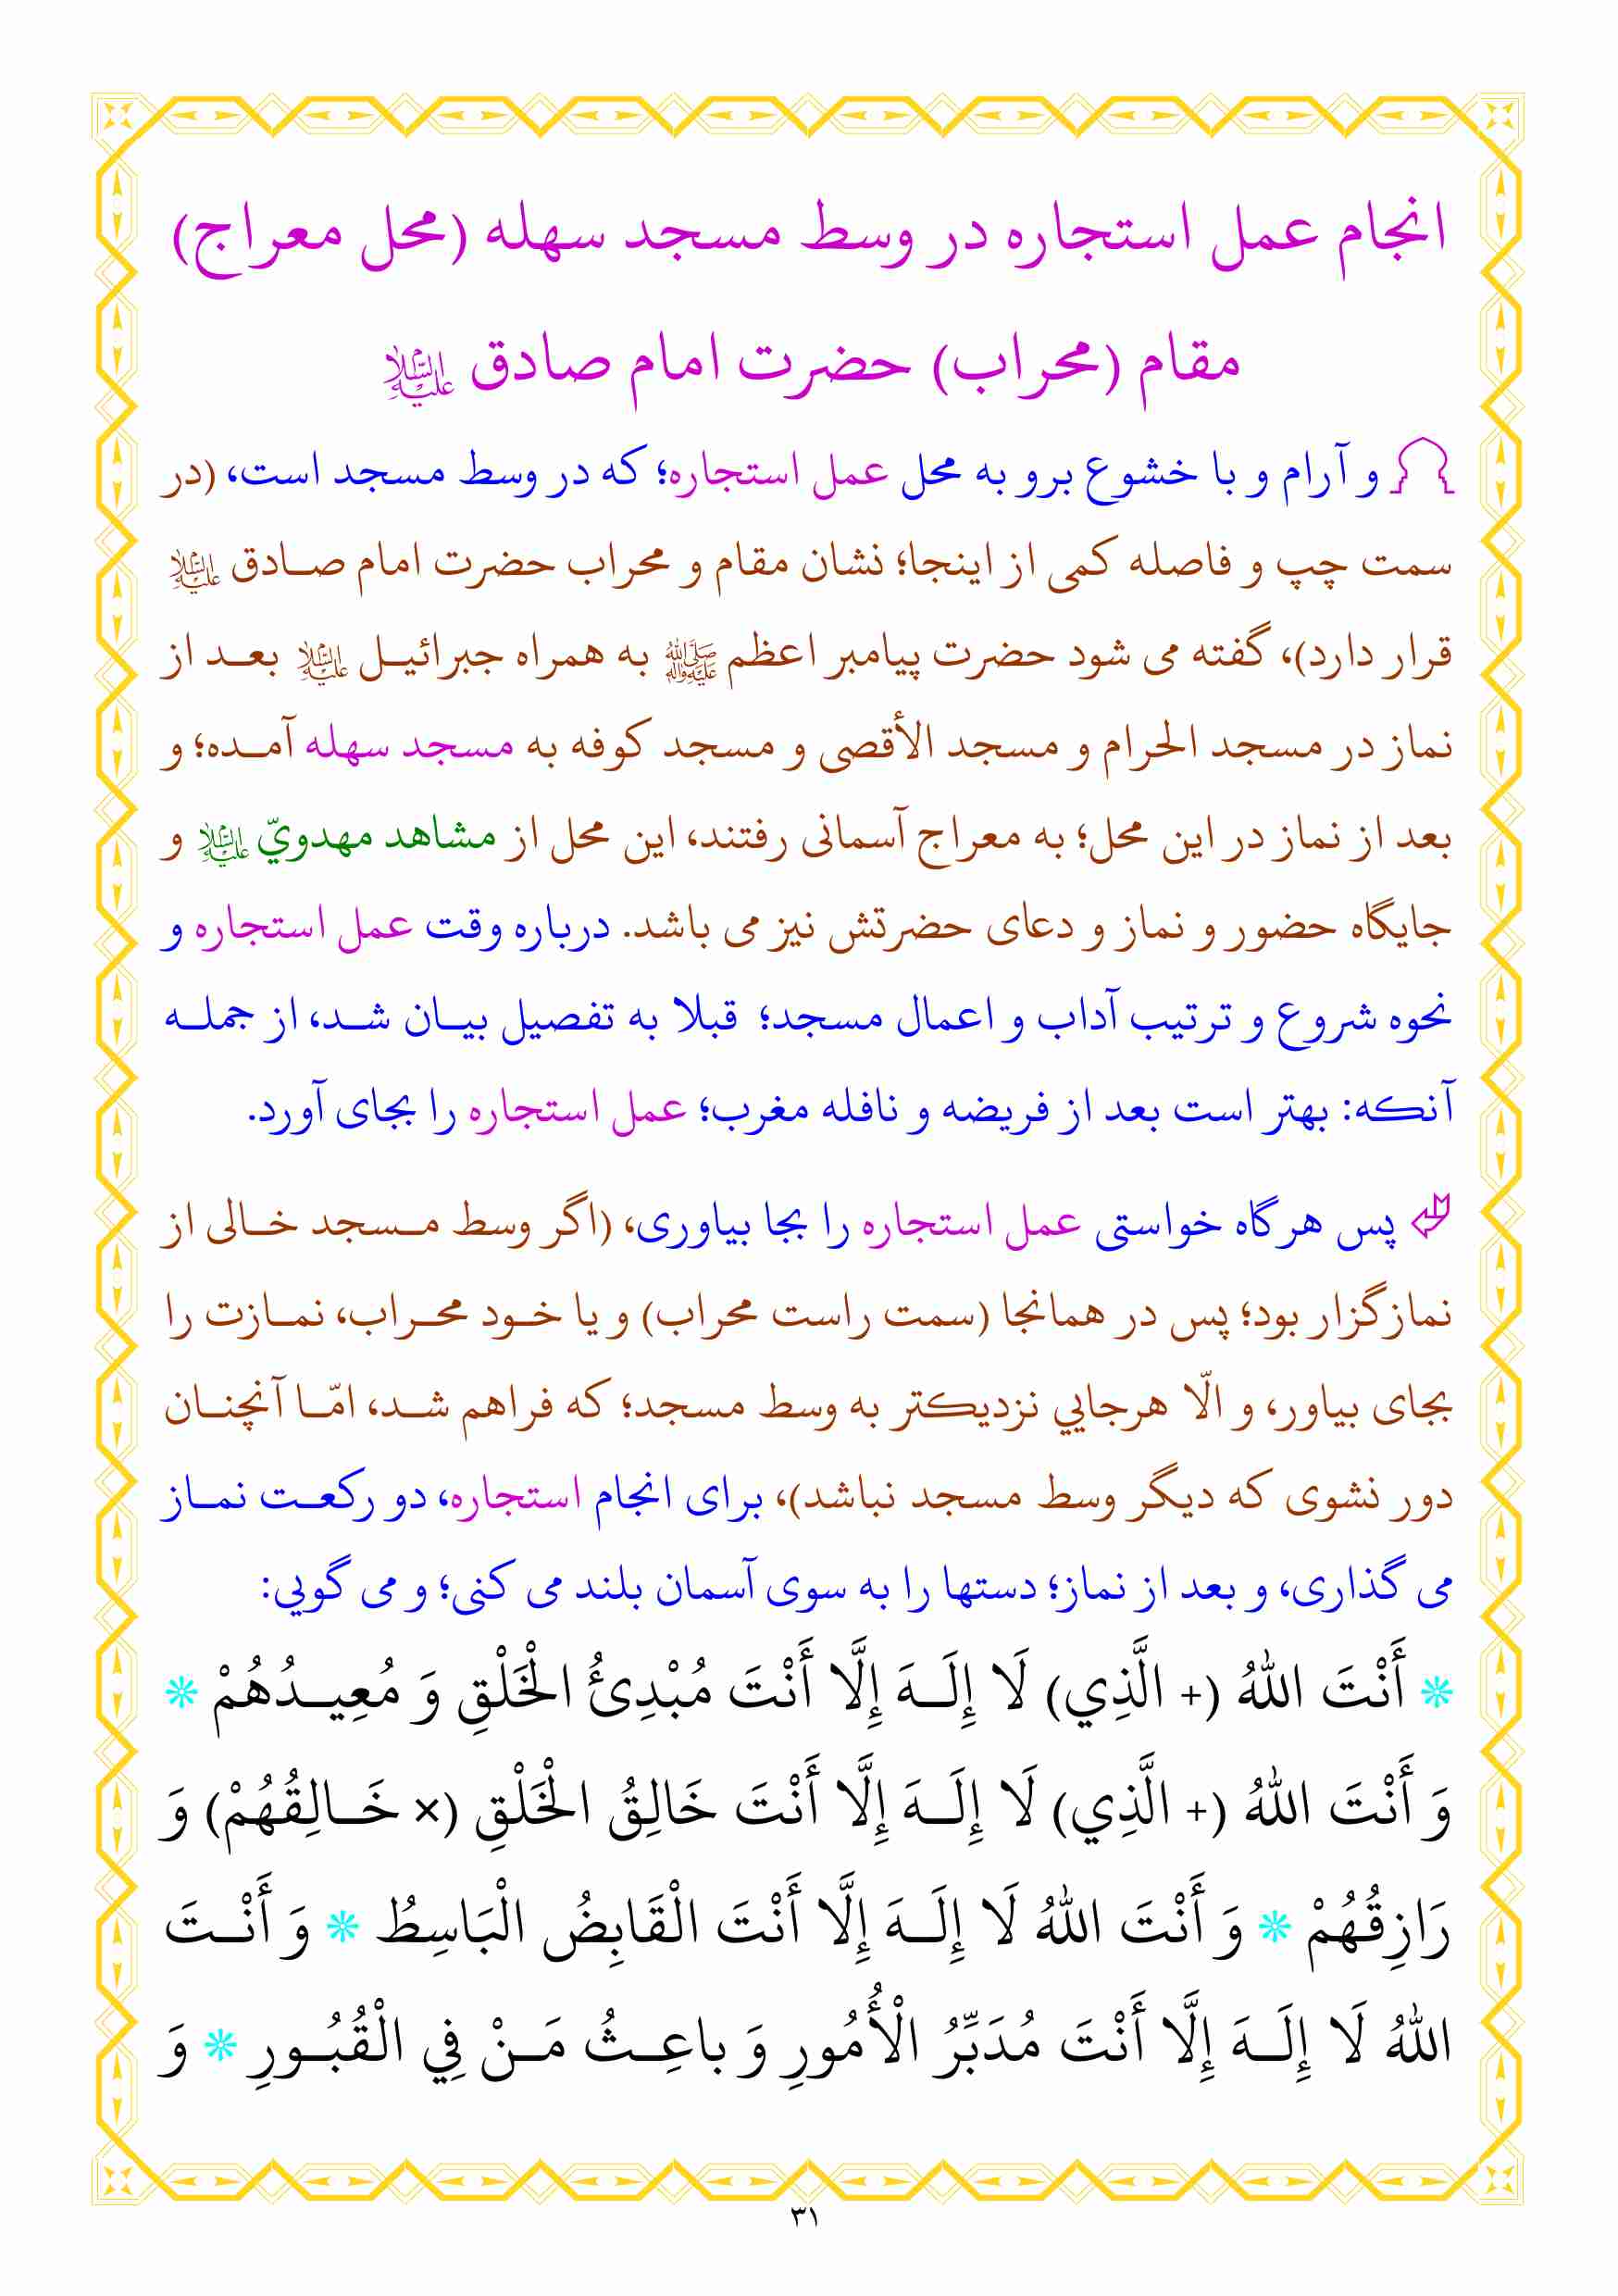 انجام عمل استجاره در وسط مسجد سهله (محل معراج)
مقام (محراب) حضرت امام صادق علیه السلام
و آرام و با خشوع برو به محل عمل استجاره؛ که در وسط مسجد است، (در
سمت چپ و فاصله کمی از اینجا؛ نشان مقام و محراب حضرت امام صـادق علیه السلام
قرار دارد)، گفته می شود حضرت پیامبر اعظم ﷺ به همراه جبرائیـل علیه السلام بعـد از
نماز در مسجد الحرام و مسجد الأقصی و مسجد کوفه به مسجد سهله آمـده؛ و
بعد از نماز در این محل؛ به معراج آسمانی رفتند، این محل از مشاهد مهدويّ علیه السلام و
جایگاه حضور و نماز و دعای حضرتش نیز می باشد. درباره وقت عمل استجاره و
نحوه شروع و ترتیب آداب و اعمال مسجد؛ قبلا به تفصیل بیـان شـد، از جملـه
آنکه: بهتر است بعد از فریضه و نافله مغرب؛ عمل استجاره را بجای آورد.
پس هرگاه خواستی عمل استجاره را بجا بیاوری، (اگر وسط مـسجد خـالی از
نمازگزار بود؛ پس در همانجا (سمت راست محراب) و یا خـود محـراب، نمـازت را
بجای بیاور، و الّا هرجایي نزدیکتر به وسط مسجد؛ که فراهم شـد، امّـا آنچنـان
دور نشوی که دیگر وسط مسجد نباشد)، برای انجام استجاره، دو رکعـت نمـاز
می گذاری، و بعد از نماز؛ دستها را به سوی آسمان بلند می کنی؛ و می گویي:
* أَنْتَ اللهُ (+ الَّذِي) لَا إِلَـهَ إِلَّا أَنْتَ مُبْدِئُ الْخَلْقِ وَ مُعِيـدُهُمْ *
وَ أَنْتَ اللهُ (+ الَّذِي) لَا إِلَـهَ إِلَّا أَنْتَ خَالِقُ الْخَلْقِ (× خَـالِقُهُمْ) وَ
رَازِقُهُمْ * وَ أَنْتَ اللهُ لَا إِلَـهَ إِلَّا أَنْتَ الْقَابِضُ الْبَاسِطُ * وَ أَنْـتَ
اللهُ لَا إِلَـهَ إِلَّا أَنْتَ مُدَبِّرُ الْأُمُورِ وَ باعِـثُ مَـنْ فِي الْقُبُـورِ * وَ
۳۱